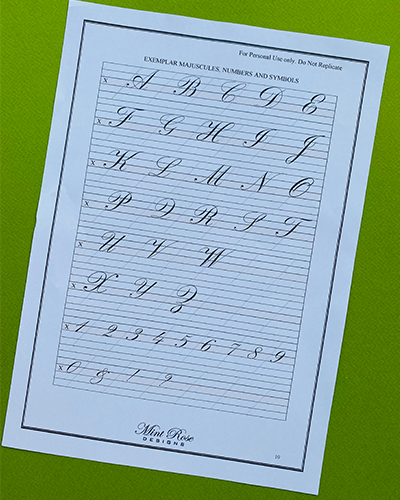 For Personal Use only. Do Not Replicate
EXEMPLAR MAJUSCULES, NUMBERS AND SYMBOLS
x A B C D E
x F G H I J
x K L M N O
x P Q R S T
x U V W
x X Y Z
x 1 2 3 4 5 6 7 8 9
x 0 & ! ?
Mint Rose
DESIGNS
10